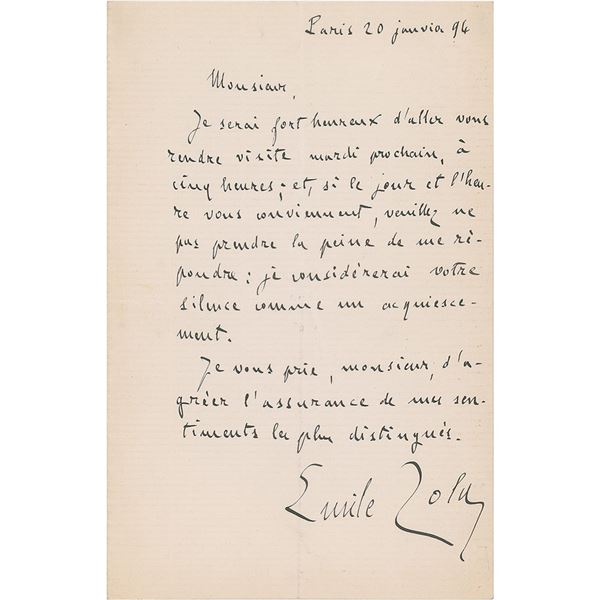 Paris 20 janvier 94
Monsieur,
Je serai fort heureux d'aller vous
rendre visite mardi prochain, à
cinq heures; et, si le jour et l'heu-
re vous conviennent, veuillez ne
pas prendre la peine de me ré-
pondre: je considérerai votre
silence comme un acquiesce-
ment.
Je vous prie, monsieur, d'a-
gréer l'assurance de mes sen-
timents les plus distingués.
Emile Zola